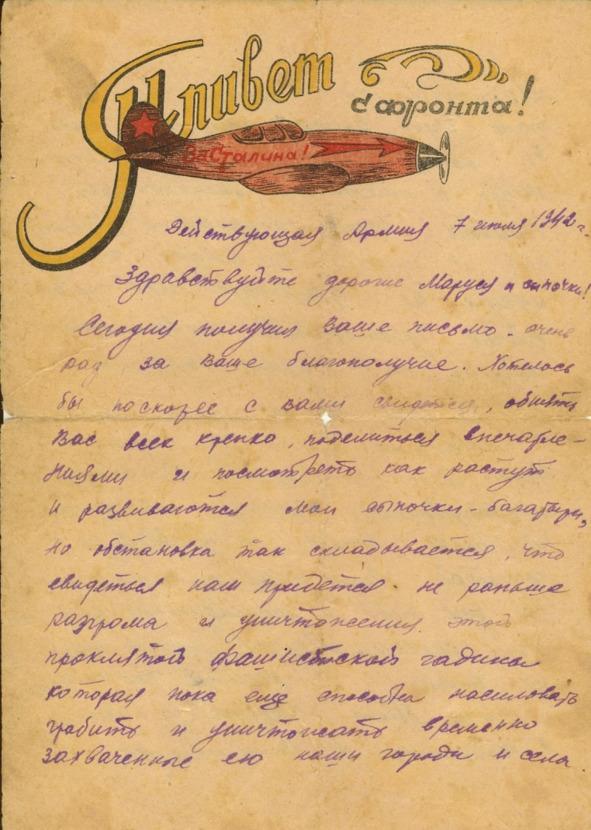 Привет
с фронта!
За Сталина!
Действующая Армия 7 июля 1942 г.
Здравствуйте дорогие Маруся и сыночки!
Сегодня получил Ваше письмо. очень
рад за Ваше благополучие. Хотелось
бы поскорее с вами свидеться, обнять
Вас всех крепко, поделиться впечатле-
ниями и посмотреть как растут
и развиваются мои сыночки-багатыри,
но обстановка так складывается, что
свидеться нам придется не раньше
разгрома и уничтожения этой
проклятой фашистской гадины
которая пока еще способна насиловать
грабить и уничтожать временно
захваченные ею наши города и села